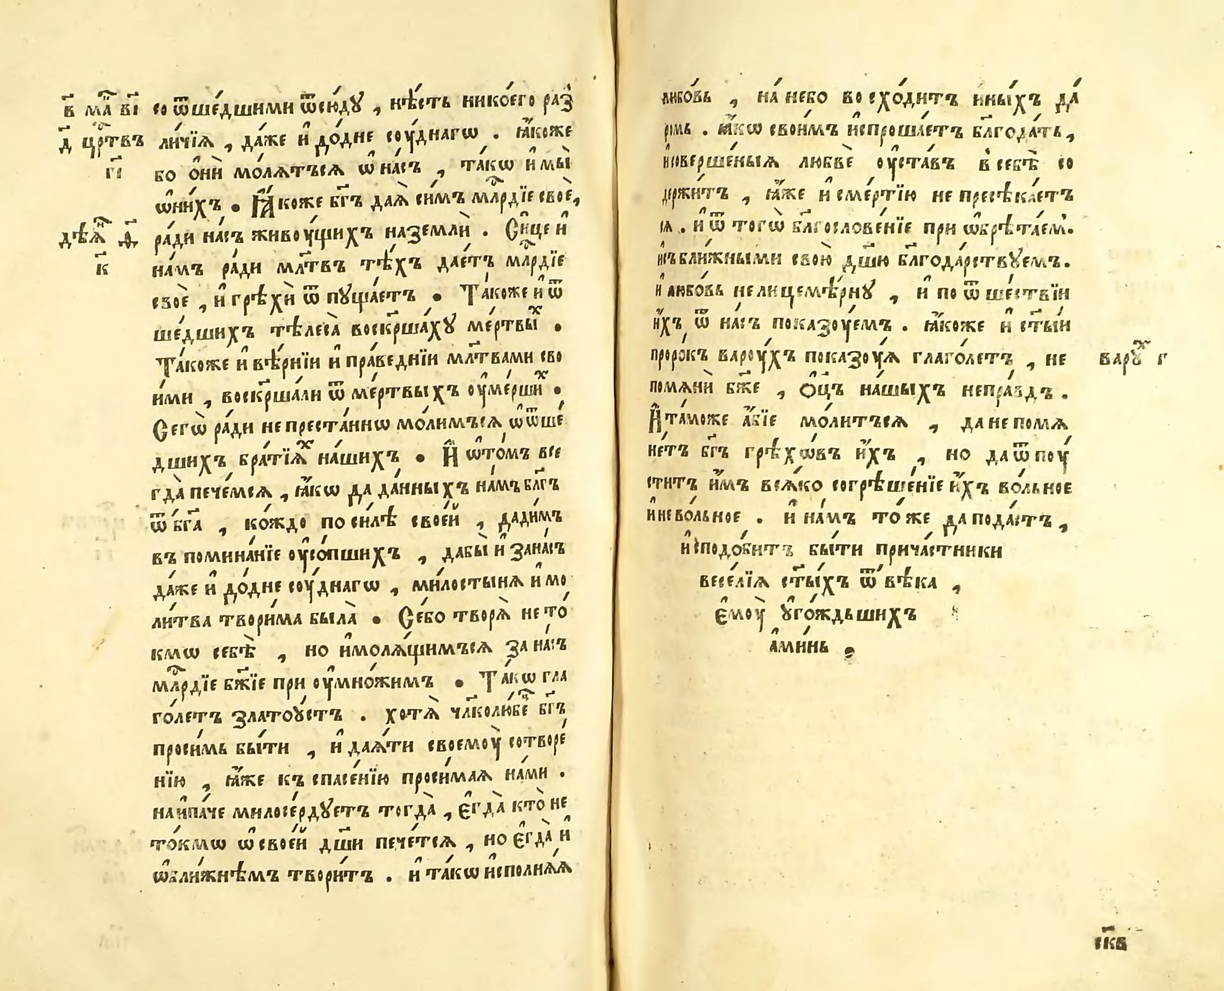 в҃ ма҃ в҃і
д҃ црт҃въ
г҃і
дѣѧ҃ д҃
к҃
со ѿше́дшими ѿсю́дꙋ , нѣ́сть нико́его раз̾
ли́чїѧ , да́же и҆ до́дне соу́днагѡ . ꙗ҆́коже
бо ѻ҆ни́ молѧ́тъсѧ ѡ҆ на́съ , та́кѡ и҆ мы̀
ѡ҆ни́хъ . Ꙗ҆́коже бг҃ъ даѧ̀ си́мъ млр҃дїе своѐ,
ра́ди на́съ живоу́щихъ наземлѝ . Си́це и҆
на́мъ ра́ди мл҃твъ тѣ́хъ дае́тъ млр҃дїе
своѐ , и҆ грѣхѝ ѿ пꙋща́етъ . Та́коже и҆ ѿ
ше́дшихъ тѣлеса̀ воскрша́хꙋ ме́ртвыⷯ .
Та́коже и҆ вѣ́рнїи и҆ пра́веднїи мл҃твами сво
и́ми , воскрша́ли ѿ ме́ртвыхъ оу҆ме́ршиⷯ .
Сегѡ̀ ра́ди не преста́ннѡ мо́лимъсѧ, ѡ҆ ѿше́
дшихъ бра́тїѧⷯ на́шихъ . И҆ ѡ҆то́мъ все
гда̀ пече́мсѧ , ꙗ҆́кѡ да да́нныхъ на́мъ бл҃гъ
ѿ бг҃а , ко́ждо по си́лѣ свое́й , дади́мъ
въ помина́нїе оу҆со́пшихъ , дабы̀ и҆ зана́съ
да́же и҆ до́дне соу́днагѡ , ми́лостынѧ и҆ мо
ли́тва твори́ма была̀ . Се́бо творѧ̀ не то́
кмѡ себѣ̀ , но и҆молѧ́щимъсѧ за на́съ
млр҃дїе бж҃їе при оу҆мно́жимъ . Та́кѡ гла
го́летъ златоꙋ́стъ . хотѧ̀ чл҃колю́бе́ бг҃ъ
проси́мь бы́ти , и҆ даѧ́ти своемоу̀ сотворе́
нїю , ꙗ҆́же къ спасе́нїю проси́маѧ на́ми .
наипа́че милосе́рдꙋетъ тогда̀ , є҆гда̀ кто̀ не
то́кмѡ ѡ҆ свое́й дш҃и пече́тсѧ , но є҆гда̀ и҆
ѡ҆бли́жнѣмъ твори́тъ . и҆ та́кѡ и҆сполнѧ́ѧ
любо́вь , на́ небо восхо́дитъ и́ныхъ да́
ромь . ꙗ҆́кѡ свои́мъ и҆спроша́етъ бл҃года́ть ,
и҆соверше́ныѧ любвѐ оу҆ста́въ в себѣ̀ со
держи́тъ , ꙗ҆́же и҆ сме́ртїю не пресѣка́етъ
сѧ . и҆ ѿ того̀ бл҃гослове́нїе при ѡ҆брѣта́ем.
исъбли́жными свою̀ дш҃ю бл҃года́рствꙋемъ .
и҆ любо́вь нелицемѣ́рнꙋ , и҆ по ѿ ше́ствїи
и҆́хъ ѿ на́съ показоу́емъ . ꙗ҆́коже и҆ ст҃ы́и
проро́къ вароу́хъ показоу́ѧ глаго́летъ , не
вароⷯ г҃
помѧнѝ бж҃е , Ѻ҆ц҃ъ на́шыхъ непра́вдъ .
И҆ та́може а҆́бїе мо́литъсѧ , да не помѧ
не́тъ бг҃ъ грѣхѡ́въ и҆́хъ , но да ѿ поу
сти́тъ и҆́мъ всѧ́ко согрѣше́нїе и҆́хъ во́льное
и҆нево́льное . и҆ на́мъ то́же да пода́стъ ,
и҆сподо́битъ бы́ти прича́стники
весе́лїѧ ст҃ы́хъ ѿ вѣ́ка ,
є҆моу̀ ꙋ҆го́ждьшихъ
а҆ми́нь .
ск҃в